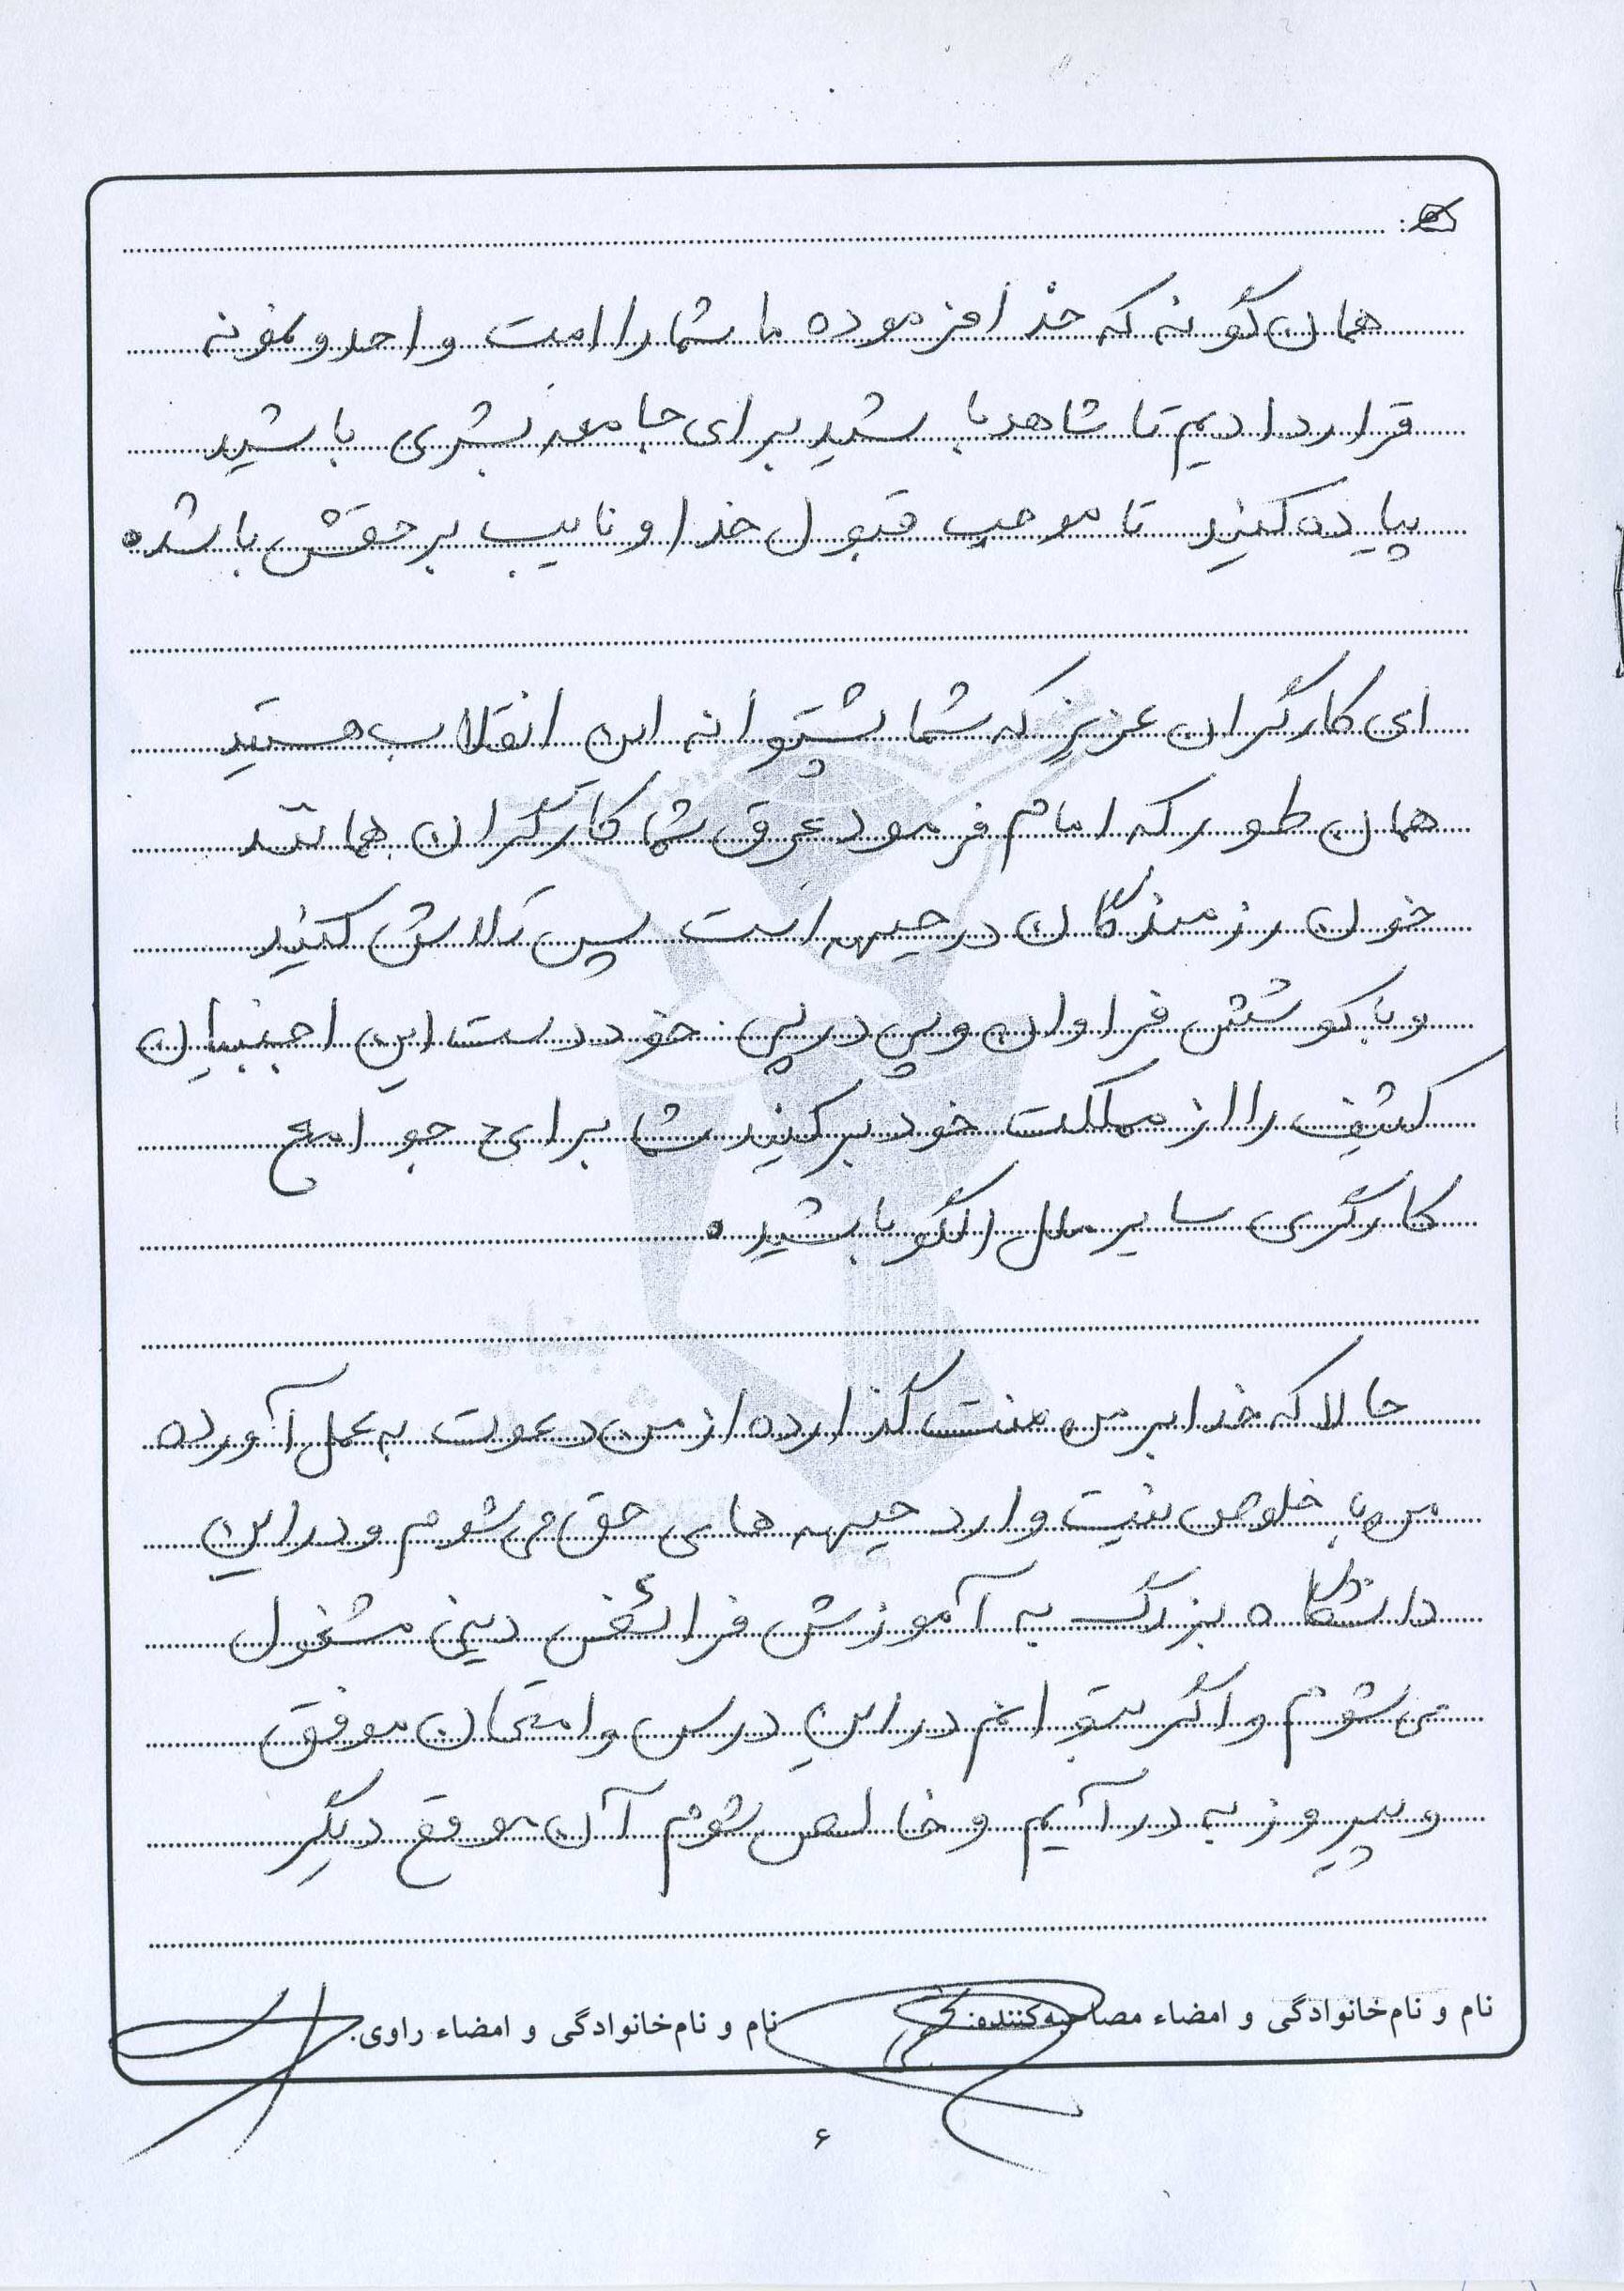 همان گونه که خدا فرموده ما شما را امت واحد و نمونه
قرار دادیم تا شاهد باشید برای جامعه بشری باشید
پیاده کنید تا موجب قبول خدا و نایب برحقش باشد.
ای کارگران عزیز که شما پشتوانه این انقلاب هستید
همان طور که امام فرمود عرق شما کارگران همانند
خون رزمندگان در جبهه است پس تلاش کنید
و با کوشش فراوان و پی در پی خود دست این اجنبیان
کثیف را از مملکت خود بر کنید شما برای جوامع
کارگری سایر ملل الگو باشید.
حالا که خدا بر من منت گذارده از من دعوت به عمل آورده
من با خلوص نیت وارد جبهه های حق می شوم و در این
دانشگاه بزرگ به آموزش فرائض دینی مشغول
می شوم و اگر بتوانم در این درس و امتحان موفق
و پیروز به در آیم و خالص شوم آن موقع دیگر
نام و نام خانوادگی و امضاء مصاحبه‌کننده: نام و نام خانوادگی و امضاء راوی:
۶